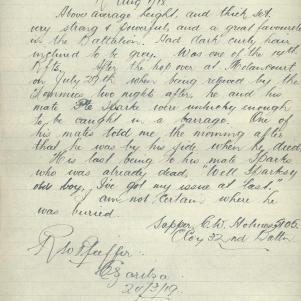 Aug /18.
Above average height, and thick set,
very strong & powerful, and a great favourite
in the Battalion. Had dark curly hair
inclined to grey. Was one of the
After the hop over at Melancourt
on July 29th when being relieved by the
Tommies two nights after he and his
mate Pte Sparks were unlucky enough
to be caught in a barrage. One of
his mates told me the morning after
that he was by his side when he died.
His last being to his mate Sparks
who was already dead, "Well Sparksy
old boy, I've got my issue at last."
I am not certain where he
was buried.
Sapper C.W.
Coy 32nd Battn.
20/3/19